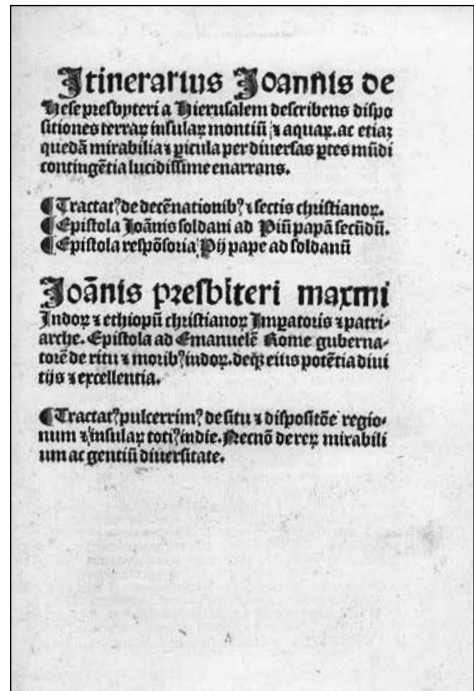 Itinerarius Joannis de
Hese presbyteri a Hierusalem describens dispo
sitiones terraꝝ insulaꝝ montiũ ⁊ aquaꝝ. ac etiaꝫ
quedã mirabilia ⁊ ꝑicula per diuersas ꝑtes mũdi
contingẽtia lucidissime enarrans.
¶ Tractatꝰ de decẽnationibꝰ ⁊ sectis christianoꝝ.
¶ Epistola Joãnis soldani ad Piũ papã secũdũ.
¶ Epistola respõsoria Pij pape ad soldanũ
Joãnis presbiteri maximi
Indoꝝ ⁊ ethiopũ christianoꝝ Impatoris ⁊ patri-
arche. Epistola ad Emanuelẽ Rome guberna-
torẽ de ritu ⁊ moribꝰ indoꝝ. deqꝫ eius potẽtia diui
tijs ⁊ excellentia.
¶ Tractatꝰ pulcerrimꝰ de situ ⁊ dispositõe regio-
num ⁊ insulaꝝ totiꝰ indie. Necnõ de reꝝ mirabili
um ac gentiũ diuersitate.